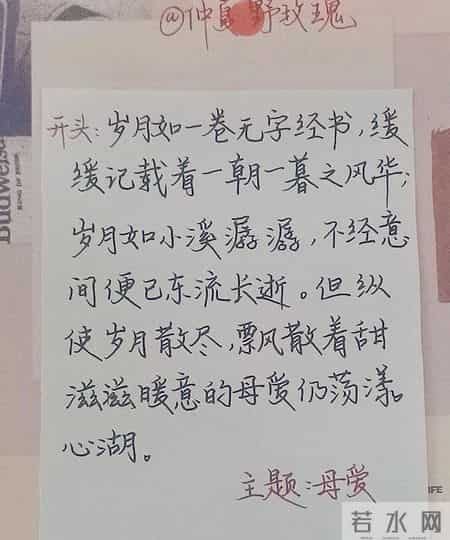 @仲夏野玫瑰
开头：岁月如一卷无字经书，缓
缓记载着一朝一暮之风华；
岁月如小溪潺潺，不经意
间便已东流长逝。但纵
使岁月散尽，飘风散着甜
滋滋暖意的母爱仍荡漾
心湖。
主题：母爱
Budweiser
IFE
若水网